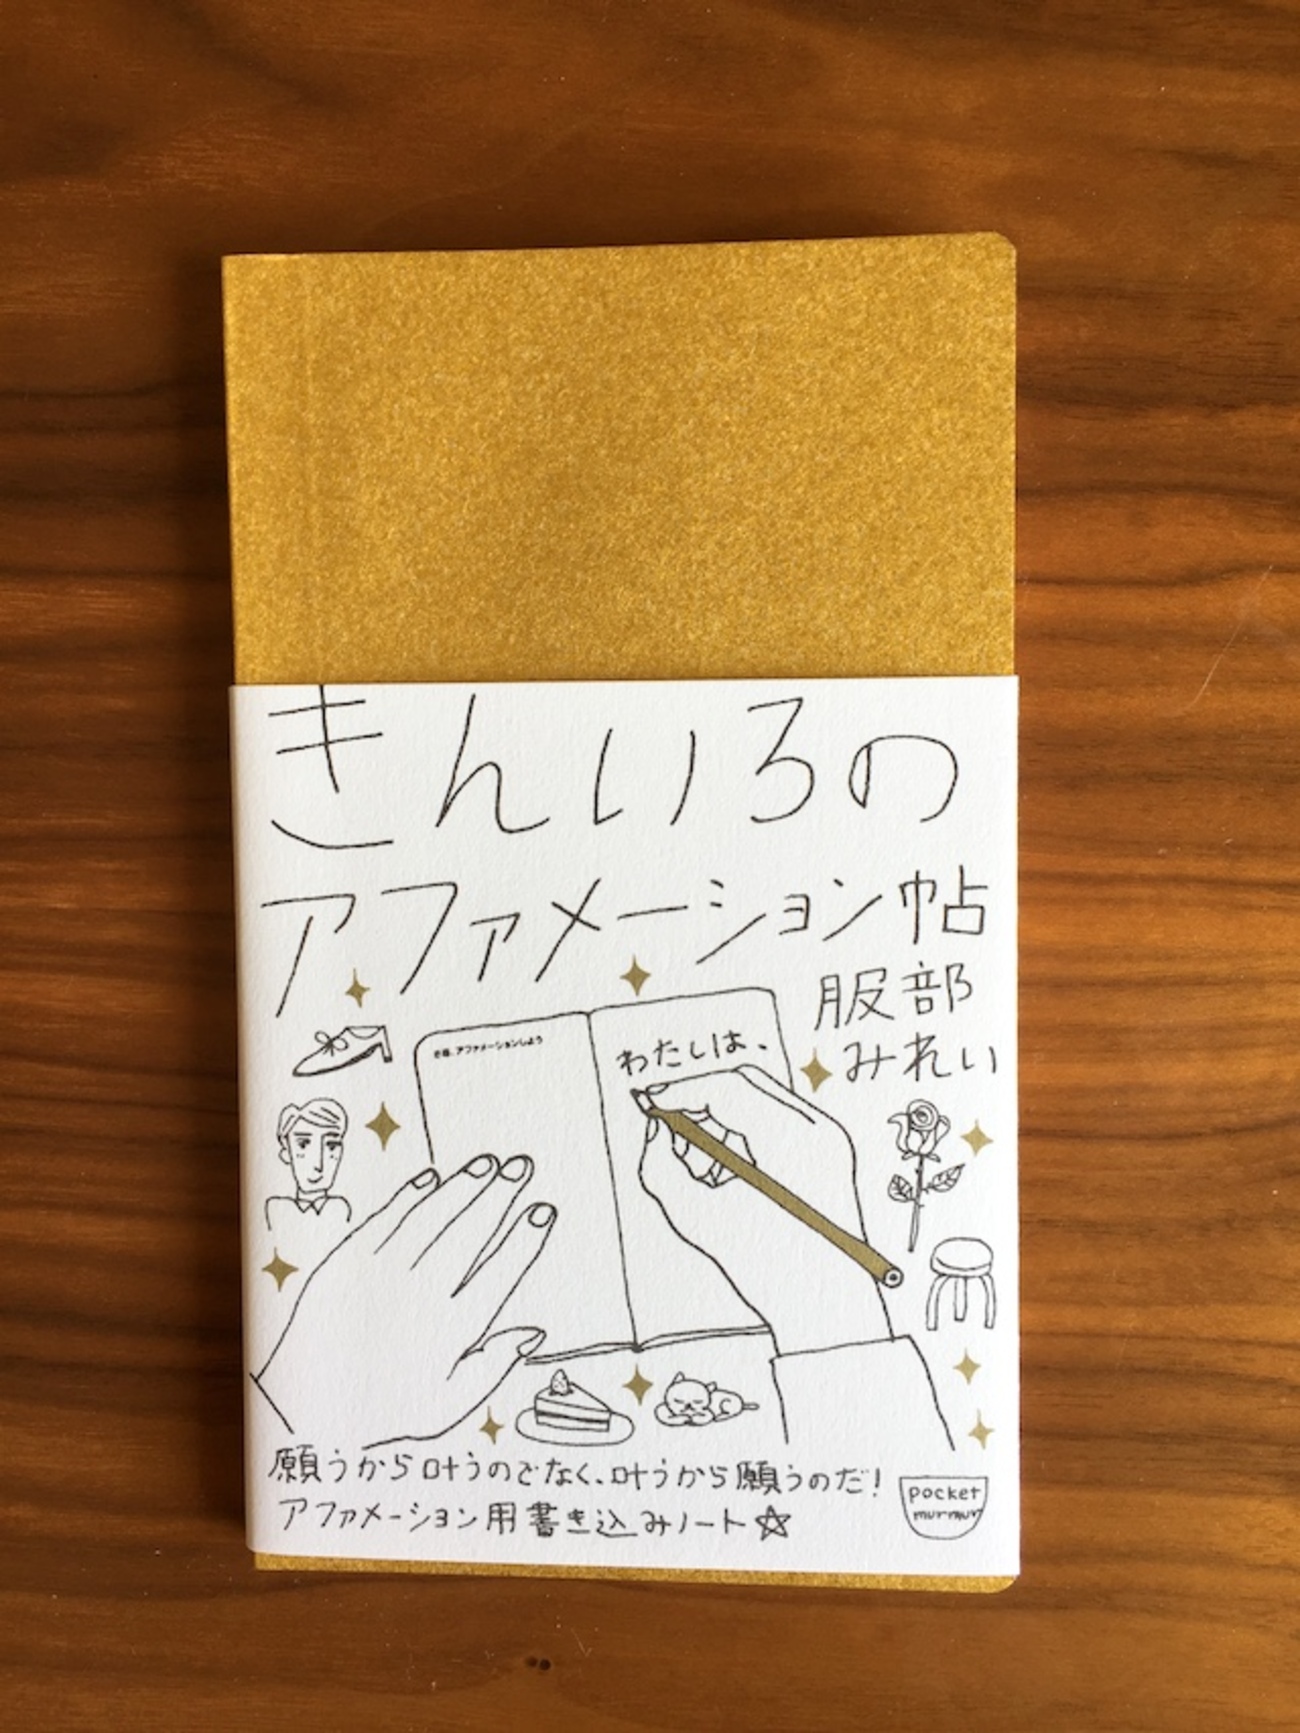 きんいろの
アファメーション帖
服部
みれい
さあ、アファメーションしよう
わたしは、
願うから叶うのでなく、叶うから願うのだ!
アファメーション用書き込みノート☆
pocket
murmur